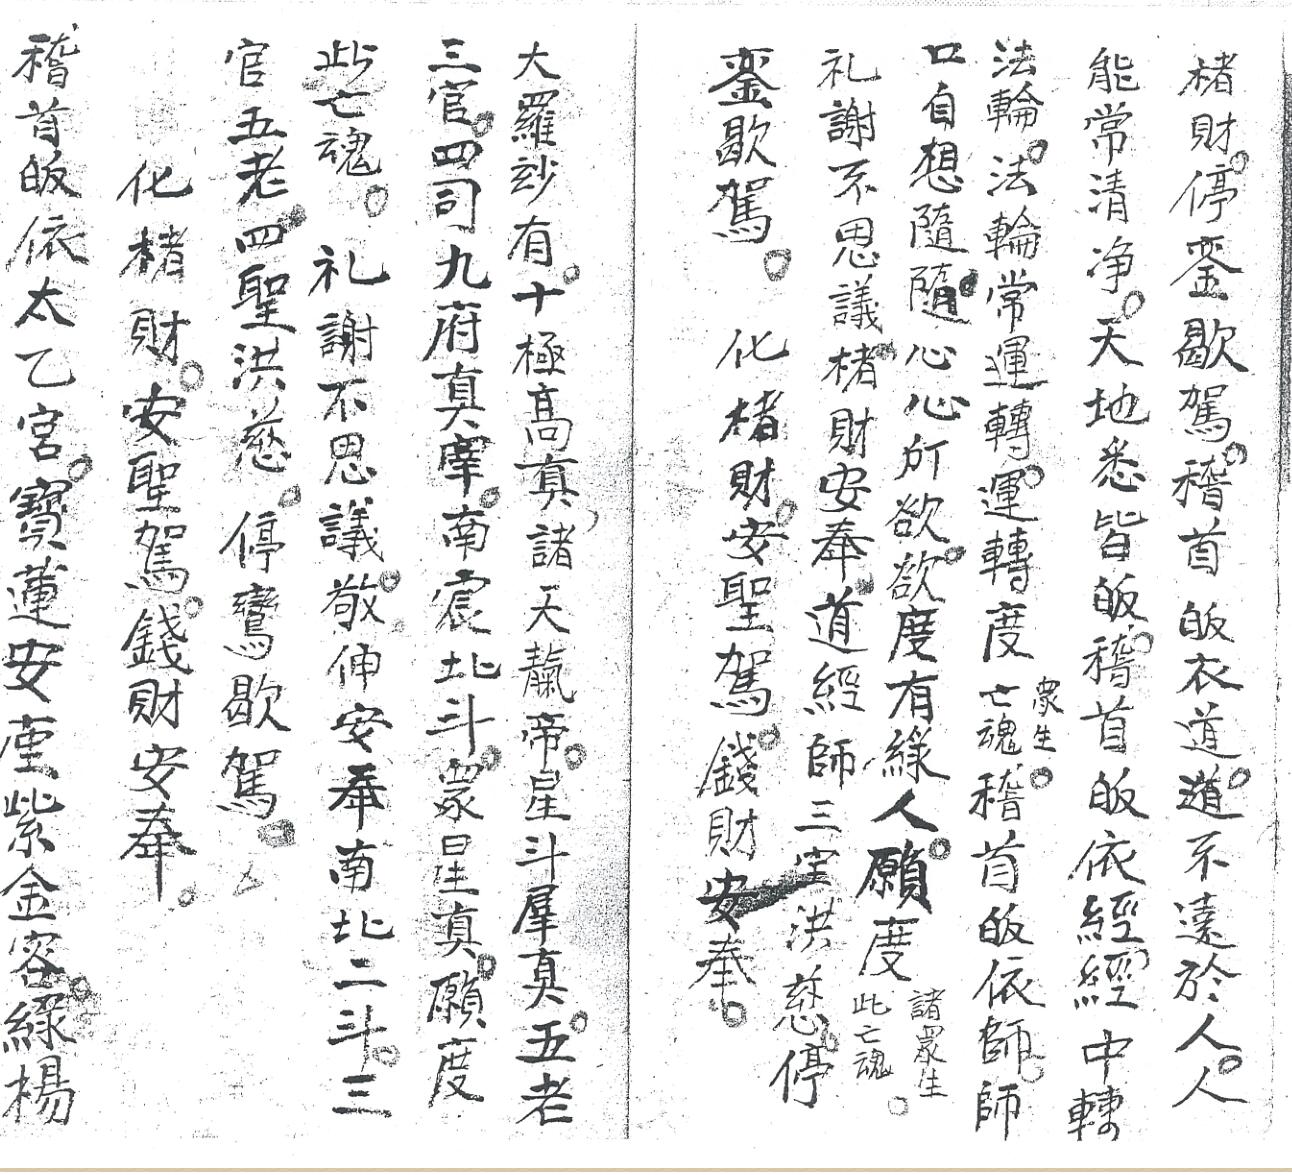 楮財。停銮歇駕。稽首皈衣道。道不遠於人。人
能常清净。天地悉皆皈。稽首皈依經。經中轉
法輪。法輪常運轉。運轉度衆生亡魂。稽首皈依師。師
口自想隨。隨心心所欲。欲度有緣人。願度諸衆生此亡魂。
礼謝不思議。楮財安奉。道經師三宝洪慈。停
銮歇駕。 化楮財。安聖駕。錢財安奉。
大羅玅有。十極高真。諸天靝帝。星斗羣真。五老
三官。四司九府真宰。南宸北斗。眾星真。願度
此亡魂。礼謝不思議。敬伸安奉南北二斗。三
官五老。四聖洪慈。停鸞歇駕。
化楮財。安聖駕。錢財安奉。
稽首皈依太乙宮。寶蓮安座紫金容。綠楊